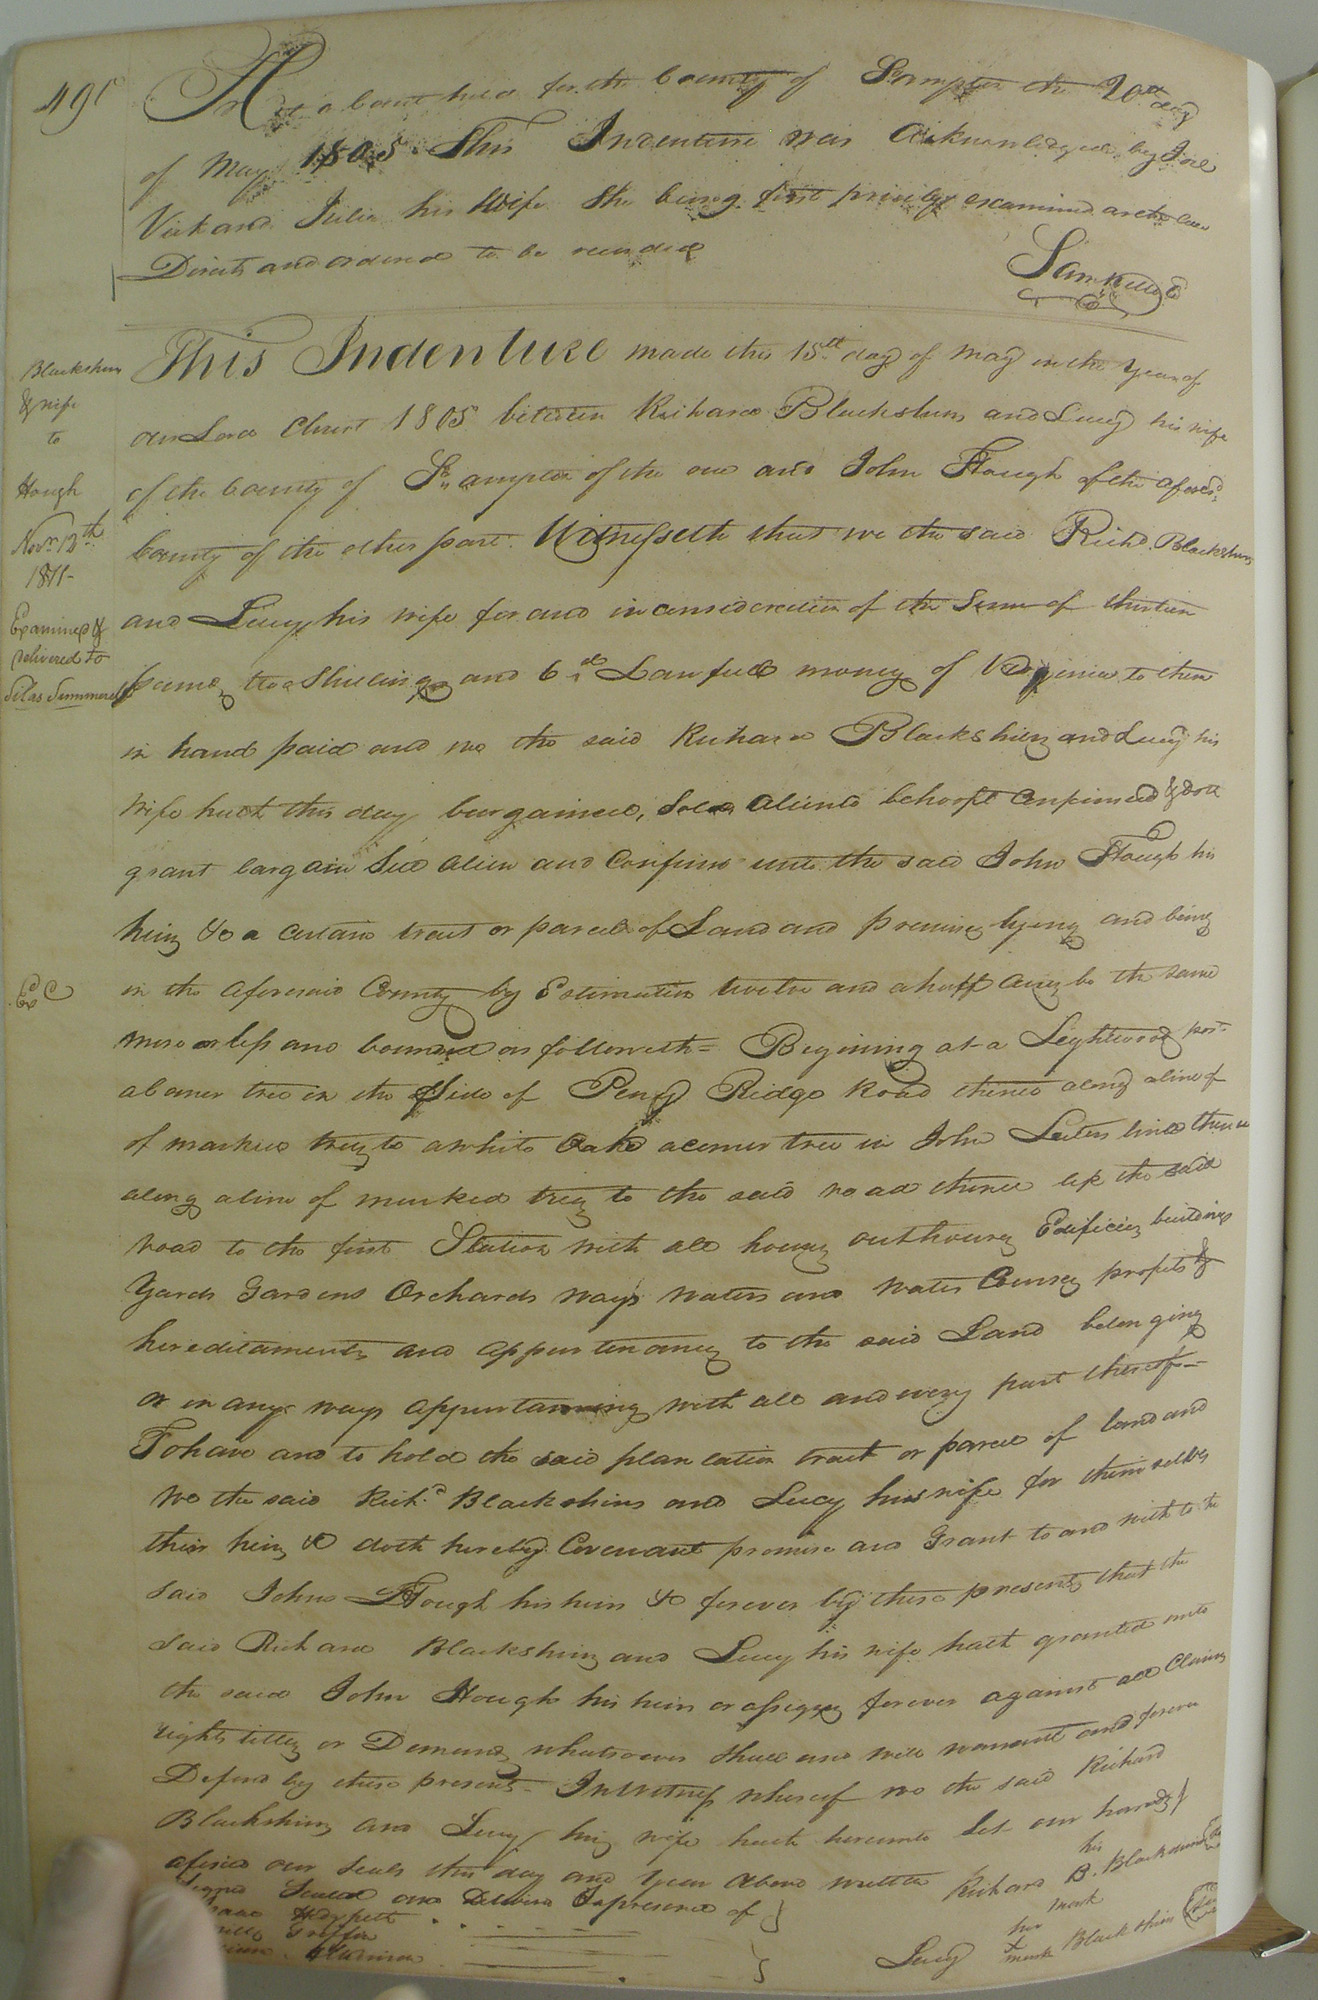 491
At a Court held for the County of Southampton the 20th day
of May 1805 This Indenture was acknowledged by Joel
Vick and Julia his Wife She being first privily examined as the Law
Directs and ordered to be recorded
Blackshins
& wife
to
Hough
Novr 12th
1811-
Examined &
delivered to
Silas Summerell
This Indenture made this 15th day of May in the Year of
our Lord Christ 1805 between Richard Blackshins and Lucy his wife
of the County of So,,ampton of the one and John Hough of the aforesd
County of the other part. Witnesseth that we the said Richd. Blackshins
and Lucy his wife for and in consideration of the Sum of thirteen
pounds two Shillings and 6d Lawfull money of Virginia to them
in hand paid and we the said Richard Blackshins and Lucy his
Wife hath this day bargained, Sold Aliend behooft Confirmed & doth
grant bargain Sell alien and Confirm unto the said John Hough his
heirs &c a certain tract or parcel of Land and premises lying and being
Exd
in the aforesaid County by Estimation twelve and a half acres be the same
more or less and bounded as followeth = Begining at a Lightwood post
a corner tree in the Side of Peny Ridge Road thence along a line of
of marked trees to a white Oake a corner tree in John lines thence
along a line of marked trees to the said road thence up the said
road to the first Station with all houses outhouses Edifices buildings
Yards Gardens Orchards ways waters and water Courses profits &
hereditaments and appurtenances to the said Land belonging
or in any ways appurtaining with all and every part thereof-
To have and to hold the said plantation tract or parcel of land and
we the said Richd. Blackshins and Lucy his wife for themselves
their heirs &c doth hereby Covenant promise and Grant to and with to the
said John Hough his heirs &c forever by these presents that the
said Richard Blackshins and Lucy his wife hath granted unto
the said John Hough his heirs or assignes forever against all Claims
rights titles or Demands whatsoever shall and will warrant and forever
Defend by these presents - In Witness whereof we the said Richard
Blackshins and Lucy his wife hath hereunto Set our hands &
afixed our Seals this day and Year above written
Signed Sealed and Delivered In presence of
his
Richard B. Blackshins
mark
her
Lucy + Blackshins
mark
Griffin